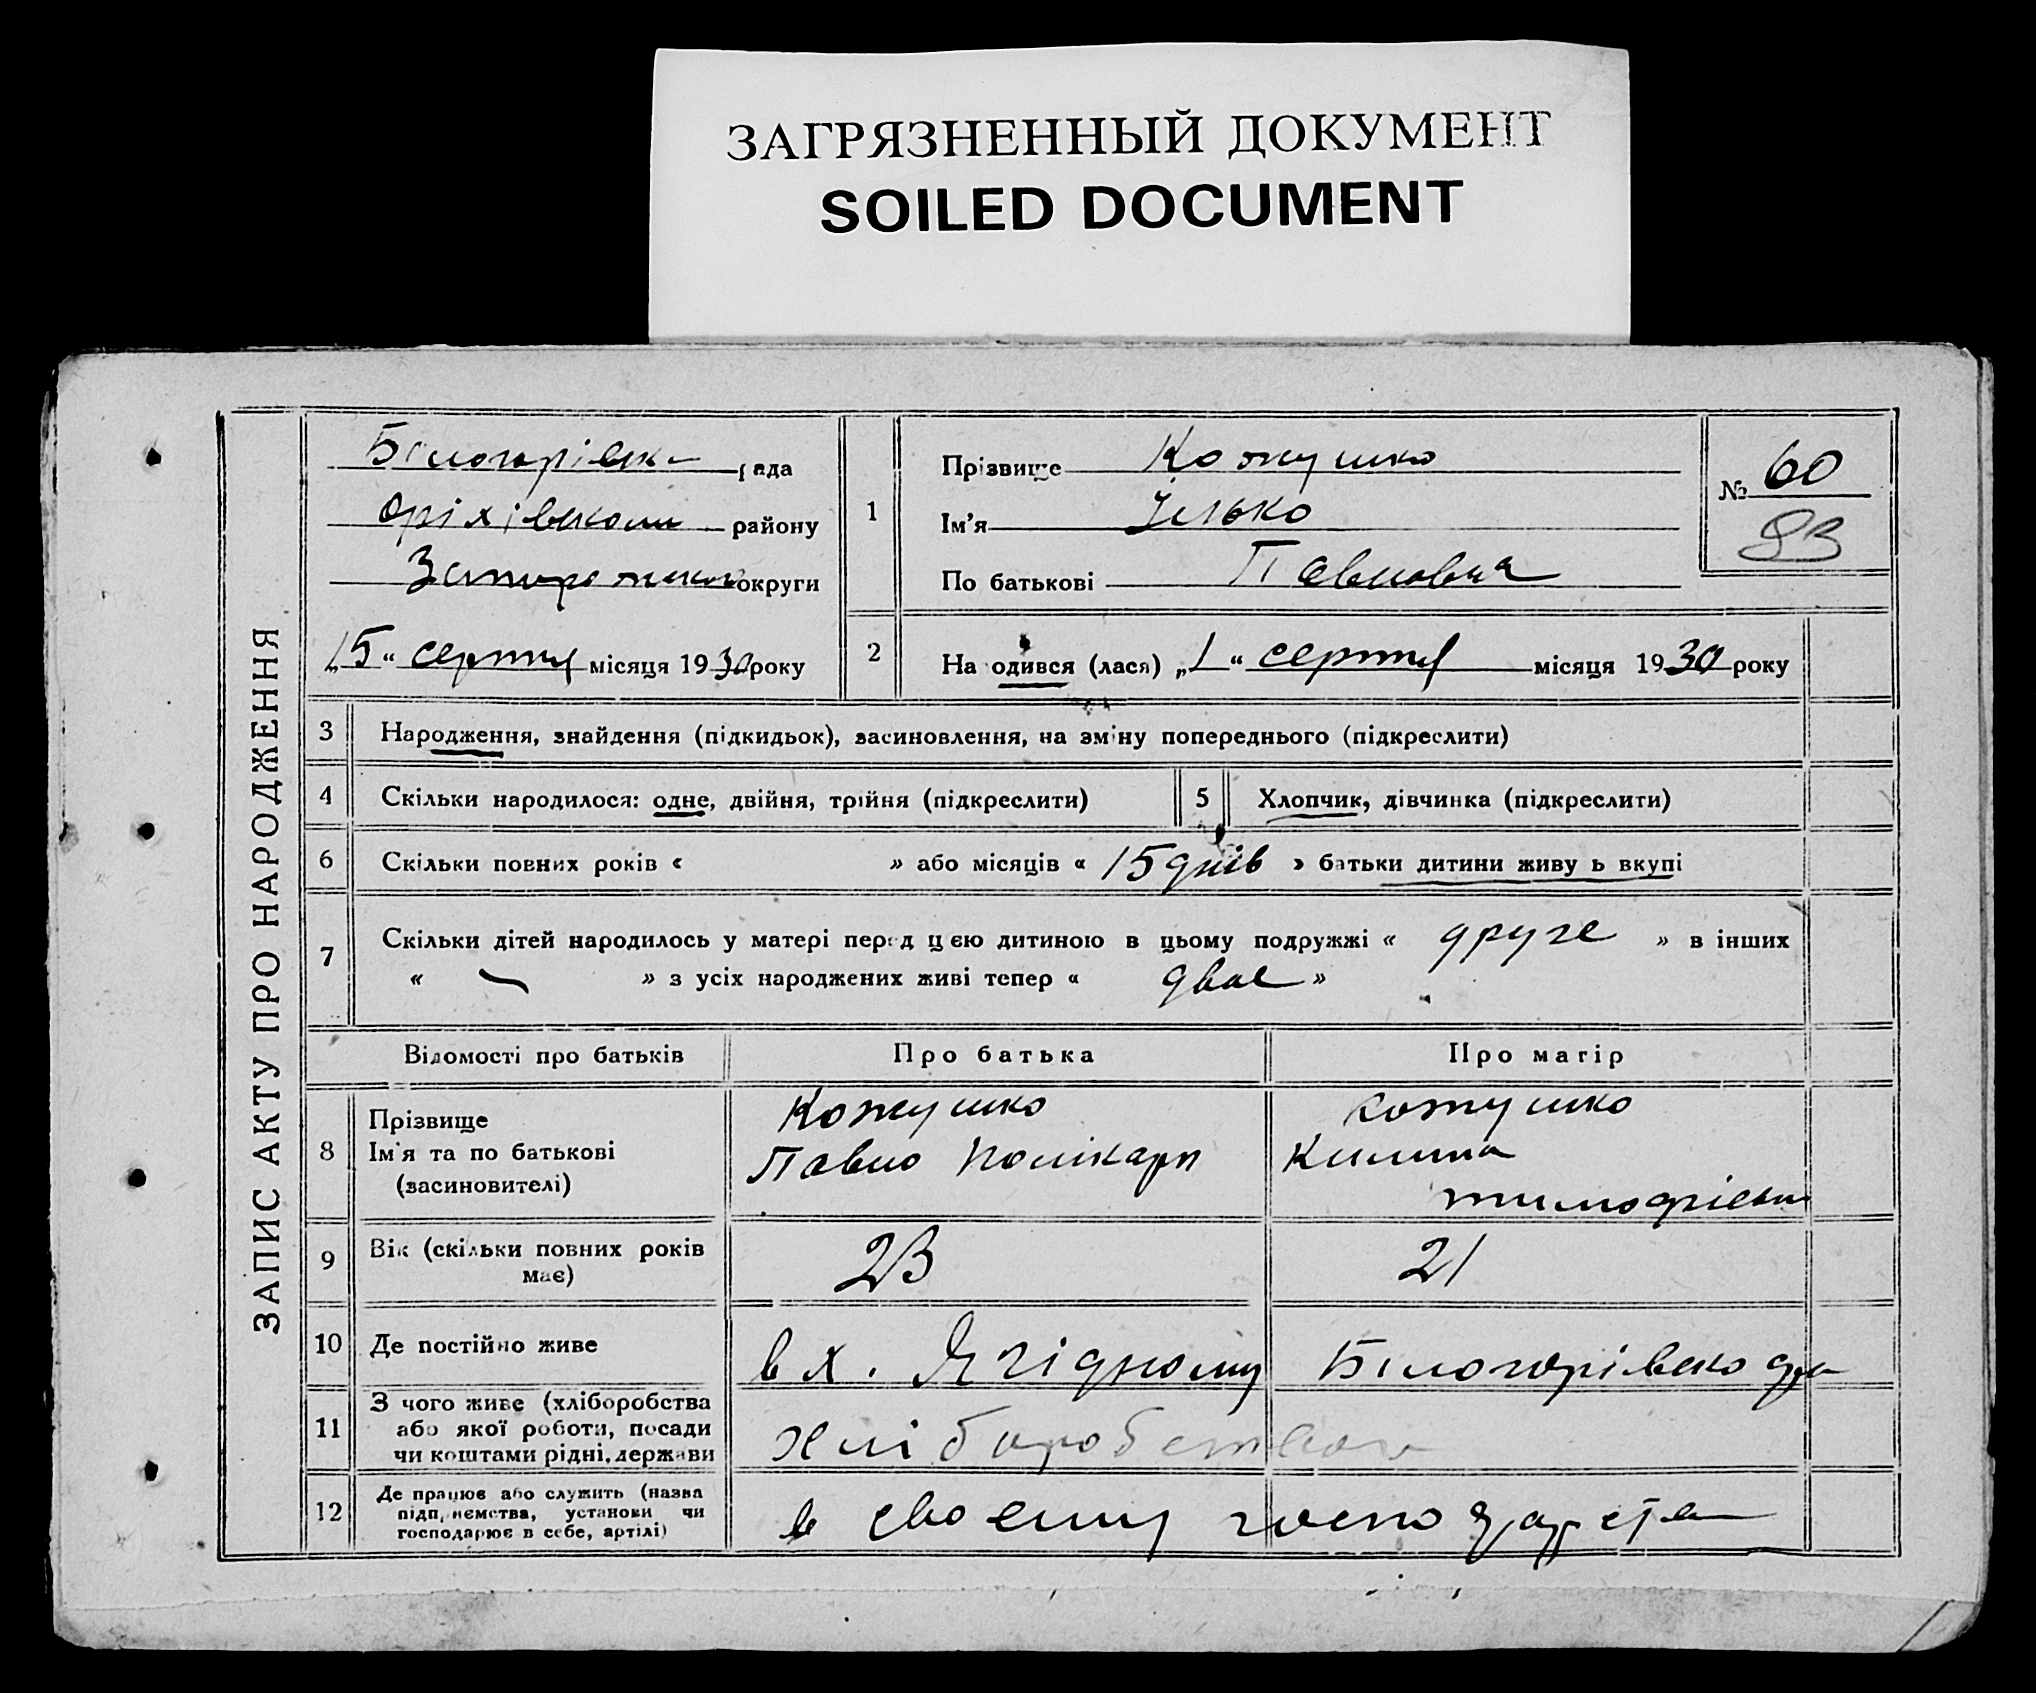 ЗАГРЯЗНЕННЫЙ ДОКУМЕНТ
SOILED DOCUMENT
ЗАПИС АКТУ ПРО НАРОДЖЕННЯ
Білогорівка рада
Оріхівском району
округи
„15“ серпня місяця 1930 року
1
Прізвище Кожушко
Ім'я Ілько
По батькові Павловича
№ 60
83
2
На одився (лася) „1“ серпня місяця 1930 року
3 Народження, знайдення (підкидьок), засиновлення, на зміну попереднього (підкреслити)
4 Скільки народилося: одне, двійня, трійня (підкреслити)
5 Хлопчик, дівчинка (підкреслити)
6 Скільки повних років « » або місяців « 15 днів » батьки дитини живу ь вкупі
7 Скільки дітей народилось у матері перед цією дитиною в цьому подружжі « друге » в інших
« — » з усіх народжених живі тепер « двае »
Відомості про батьків Про батька Про матір
8 Прізвище
Ім'я та по батькові
(засиновителі)
Кожушко
Павло Полікарп
Кожушко
Килина
тимофієвна
9 Вік (скільки повних років
має)
23 21
10 Де постійно живе в х. Ягідному Білогорівско
11 З чого живе (хліборобства
або якої роботи, посади
чи коштами рідні, держави
хліборобством
12 Де працює або служить (назва
підприємства, установи чи
господарює в себе, артілі)
в своему господарстві